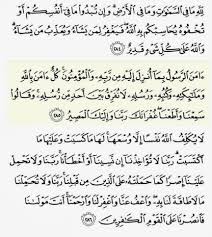 لِّلَّهِ مَا فِي ٱلسَّمَٰوَٰتِ وَمَا فِي ٱلْأَرْضِ وَإِن تُبْدُوا۟ مَا فِيٓ أَنفُسِكُمْ أَوْ
تُخْفُوهُ يُحَاسِبْكُم بِهِ ٱللَّهُ فَيَغْفِرُ لِمَن يَشَآءُ وَيُعَذِّبُ مَن يَشَآءُ
وَٱللَّهُ عَلَىٰ كُلِّ شَيْءٍ قَدِيرٌ ٢٨٤
ءَامَنَ ٱلرَّسُولُ بِمَآ أُنزِلَ إِلَيْهِ مِن رَّبِّهِۦ وَٱلْمُؤْمِنُونَ كُلٌّ ءَامَنَ بِٱللَّهِ
وَمَلَٰٓئِكَتِهِۦ وَكُتُبِهِۦ وَرُسُلِهِۦ لَا نُفَرِّقُ بَيْنَ أَحَدٍ مِّن رُّسُلِهِۦ وَقَالُوا۟
سَمِعْنَا وَأَطَعْنَا غُفْرَانَكَ رَبَّنَا وَإِلَيْكَ ٱلْمَصِيرُ ٢٨٥
لَا يُكَلِّفُ ٱللَّهُ نَفْسًا إِلَّا وُسْعَهَا لَهَا مَا كَسَبَتْ وَعَلَيْهَا مَا
ٱكْتَسَبَتْ رَبَّنَا لَا تُؤَاخِذْنَآ إِن نَّسِينَآ أَوْ أَخْطَأْنَا رَبَّنَا وَلَا تَحْمِلْ
عَلَيْنَآ إِصْرًا كَمَا حَمَلْتَهُۥ عَلَى ٱلَّذِينَ مِن قَبْلِنَا رَبَّنَا وَلَا تُحَمِّلْنَا
مَا لَا طَاقَةَ لَنَا بِهِۦ وَٱعْفُ عَنَّا وَٱغْفِرْ لَنَا وَٱرْحَمْنَآ أَنتَ مَوْلَىٰنَا
فَٱنصُرْنَا عَلَى ٱلْقَوْمِ ٱلْكَٰفِرِينَ ٢٨٦